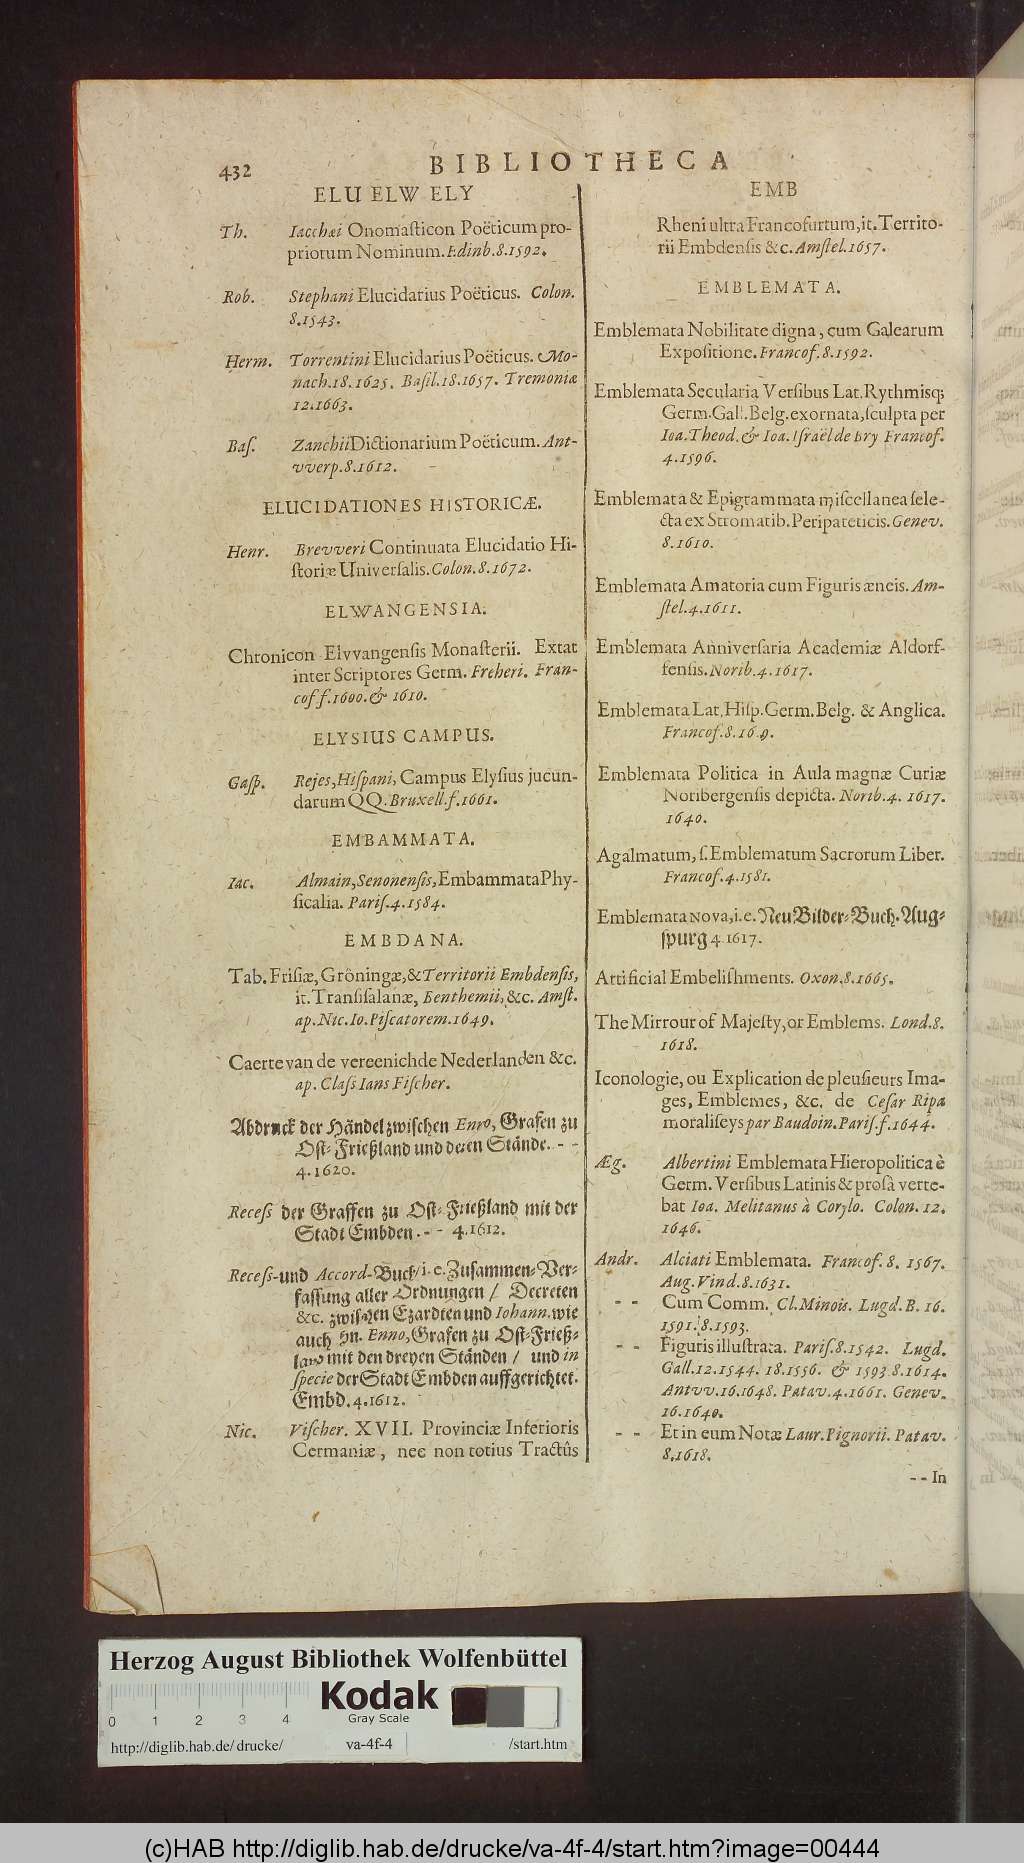 432
BIBLIOTHECA
ELU ELW ELY
Th. Iacchæi Onomaſticon Poëticum pro-
priorum Nominum. Edinb. 8. 1592.
Rob. Stephani Elucidarius Poëticus. Colon.
8. 1543.
Herm. Torrentini Elucidarius Poëticus. Mo-
nach. 18. 1625. Baſil. 18. 1657. Tremoniæ
12. 1663.
Baſ. Zanchii Dictionarium Poëticum. Ant-
vverp. 8. 1612.
ELUCIDATIONES HISTORICÆ.
Henr. Brevveri Continuata Elucidatio Hi-
ſtoriæ Univerſalis. Colon. 8. 1672.
ELWANGENSIA.
Chronicon Elvvangenſis Monaſterii. Extat
inter Scriptores Germ. Freheri. Fran-
cof f. 1600. & 1610.
ELYSIUS CAMPUS.
Gaſp. Rejes, Hiſpani, Campus Elyſius jucun-
darum QQ. Bruxell. f. 1661.
EMBAMMATA.
Iac. Almain, Senonenſis, Embammata Phy-
ſicalia. Pariſ. 4. 1584.
EMBDANA.
Tab. Friſiæ, Gröningæ, & Territorii Embdenſis,
it. Tranſiſalanæ, Benthemii, &c. Amſt.
ap. Nic. Io. Piſcatorem. 1649.
Caerte van de vereenichde Nederlanden &c.
ap. Claſs Ians Fiſcher.
Abdruck der Händel zwiſchen Enno, Grafen zu
Oſt-Frießland und deren Stände. - -
4. 1620.
Receſs der Graffen zu Oſt-Frießland mit der
Stadt Embden. - - 4. 1612.
Receſs- und Accord-Buch / i. e. Zuſammen-Ver-
faſſung aller Ordnungen / Decreten
&c. zwiſchen Ezardten und Iohann. wie
auch Hn. Enno, Grafen zu Oſt-Frieß-
land mit den dreyen Ständen / und in
ſpecie der Stadt Embden auffgerichtet.
Embd. 4. 1612.
Nic. Viſcher. XVII. Provinciæ Inferioris
Cermaniæ, nec non totius Tractûs
EMB
Rheni ultra Francofurtum, it. Territo-
rii Embdenſis &c. Amſtel. 1657.
EMBLEMATA.
Emblemata Nobilitate digna, cum Galearum
Expoſitione. Francof. 8. 1592.
Emblemata Secularia Verſibus Lat. Rythmisq;
Germ. Gall. Belg. exornata, ſculpta per
Ioa. Theod. & Ioa. Iſraël de bry Francof.
4. 1596.
Emblemata & Epigrammata miſcellanea ſele-
cta ex Stromatib. Peripateticis. Genev.
8. 1610.
Emblemata Amatoria cum Figuris æneis. Am-
ſtel. 4. 1611.
Emblemata Anniverſaria Academiæ Aldorf-
fenſis. Norib. 4. 1617.
Emblemata Lat. Hiſp. Germ. Belg. & Anglica.
Francof. 8.
Emblemata Politica in Aula magnæ Curiæ
Noribergenſis depicta. Norib. 4. 1617.
1640.
Agalmatum, ſ. Emblematum Sacrorum Liber.
Francof. 4. 1581.
Emblemata NOVA, i. e. Neu Bilder-Buch. Aug-
ſpurg 4 1617.
Artificial Embeliſhments. Oxon. 8. 1665.
The Mirrour of Majeſty, or Emblems. Lond. 8.
1618.
Iconologie, ou Explication de pleuſieurs Ima-
ges, Emblemes, &c. de Ceſar Ripa
moraliſeys par Baudoin. Pariſ. f. 1644.
Æg. Albertini Emblemata Hieropolitica è
Germ. Verſibus Latinis & proſà verte-
bat Ioa. Melitanus à Corylo. Colon. 12.
1646.
Andr. Alciati Emblemata. Francof. 8. 1567.
Aug. Vind. 8. 1631.
- - Cum Comm. Cl. Minois. Lugd. B. 16.
1591. 8. 1593.
- - Figuris illuſtrata. Pariſ. 8. 1542. Lugd.
Gall. 12. 1544. 18. 1556. & 1593 8. 1614.
Antvv. 16. 1648. Patav. 4. 1661. Genev.
16. 1640.
- - Et in eum Notæ Laur. Pignorii. Patav.
8. 1618.
- - In
Herzog August Bibliothek Wolfenbüttel
Kodak
Gray Scale
0 1 2 3 4
http://diglib.hab.de/drucke/ va-4f-4 /start.htm
(c)HAB http://diglib.hab.de/drucke/va-4f-4/start.htm?image=00444